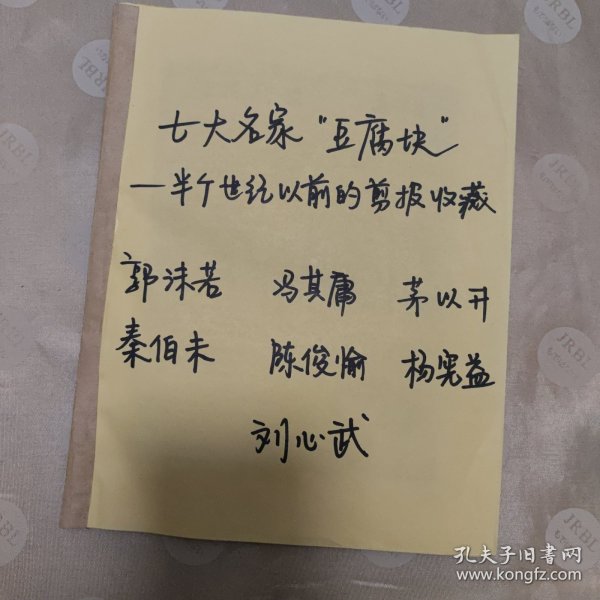 七大名家“豆腐块”
—半个世纪以前的剪报收藏
郭沫若 冯其庸 茅以升
秦伯未 陈俊愉 杨宪益
刘心武
JRBL
JRBL
JRBL
JRBL
JRBL
孔夫子旧书网
www.kongfz.com